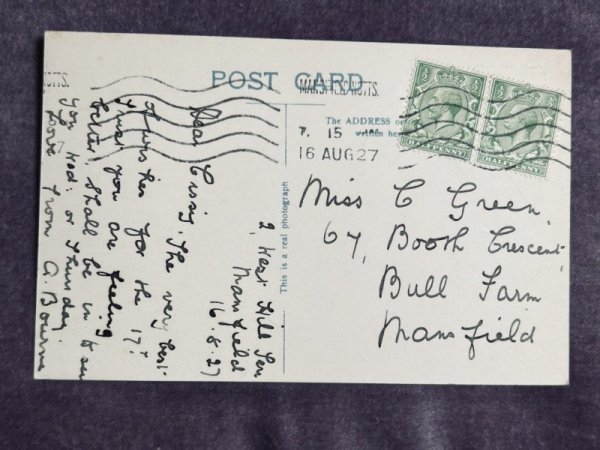 POST CARD
MANSFIELD NOTTS.
7. 15
16 AUG 27
The ADDRESS
written here
HALFPENNY
HALFPENNY
This is a real photograph
Miss C Green,
67, Booth Crescent,
Bull Farm
Mansfield
2, West Hill
Mansfield
16.8.27
Dear Cissy, The very best
of wishes for the 17th
Trust you are feeling
better, Shall be in to see
you Wed: or Thursday.
Love from A. Bourne